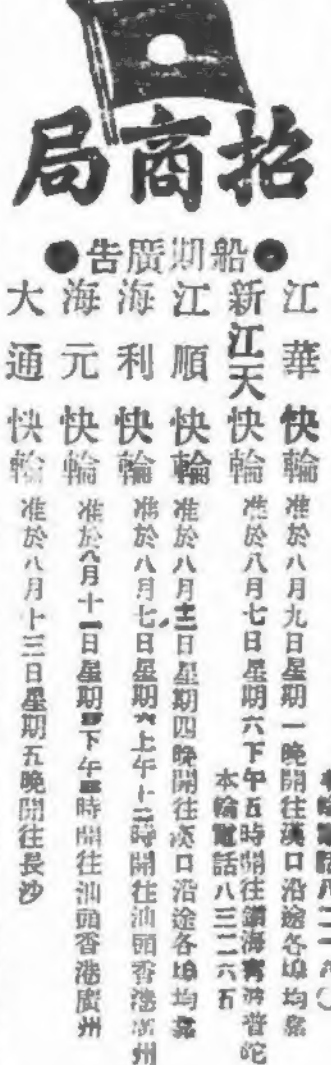 招商局
船期廣告
江華快輪 准於八月九日星期一晚開往漢口沿途各埠均靠
新江天快輪 准於八月七日星期六下午五時開往鎮海寧波普陀
本輪電話八三二六五
江順快輪 准於八月十二日星期四晚開往漢口沿途各埠均靠
海利快輪 准於八月七日星期六上午十二時開往汕頭香港廣州
海元快輪 准於八月十一日星期 下午 時開往汕頭香港廣州
大通快輪 准於八月十三日星期五晚開往長沙